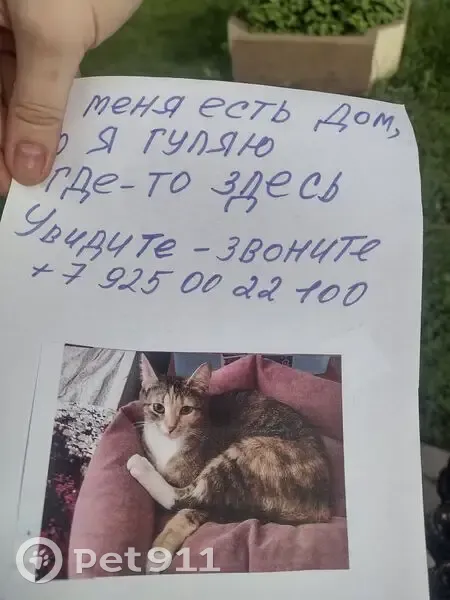 меня есть дом,
я гуляю
где-то здесь
Увидите - звоните
+7 925 00 22 100
Pet911